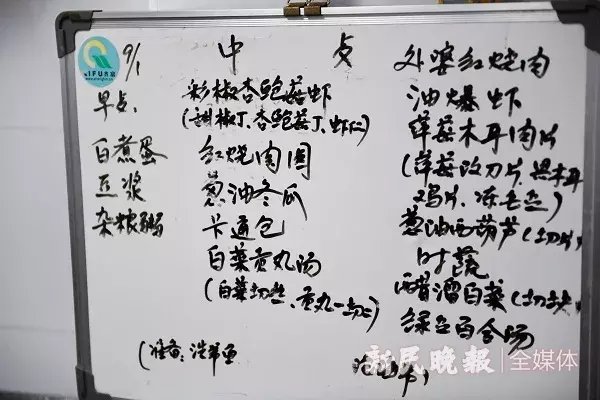 IFU齐富
9/1
早点
白煮蛋
豆浆
杂粮粥
中 点
彩椒杏鲍菇虾
(甜椒丁、杏鲍菇丁、虾仁)
红烧肉圆
葱油冬瓜
卡通包
白菜贡丸汤
(白菜切丝、贡丸一切二)
(准备:
外婆红烧肉
油爆虾
蘑菇木耳肉片
(蘑菇改刀片、黑木耳
葱油西葫芦(切片)
时蔬
醋溜白菜(切块)
绿豆百合汤
新民晚报|全媒体